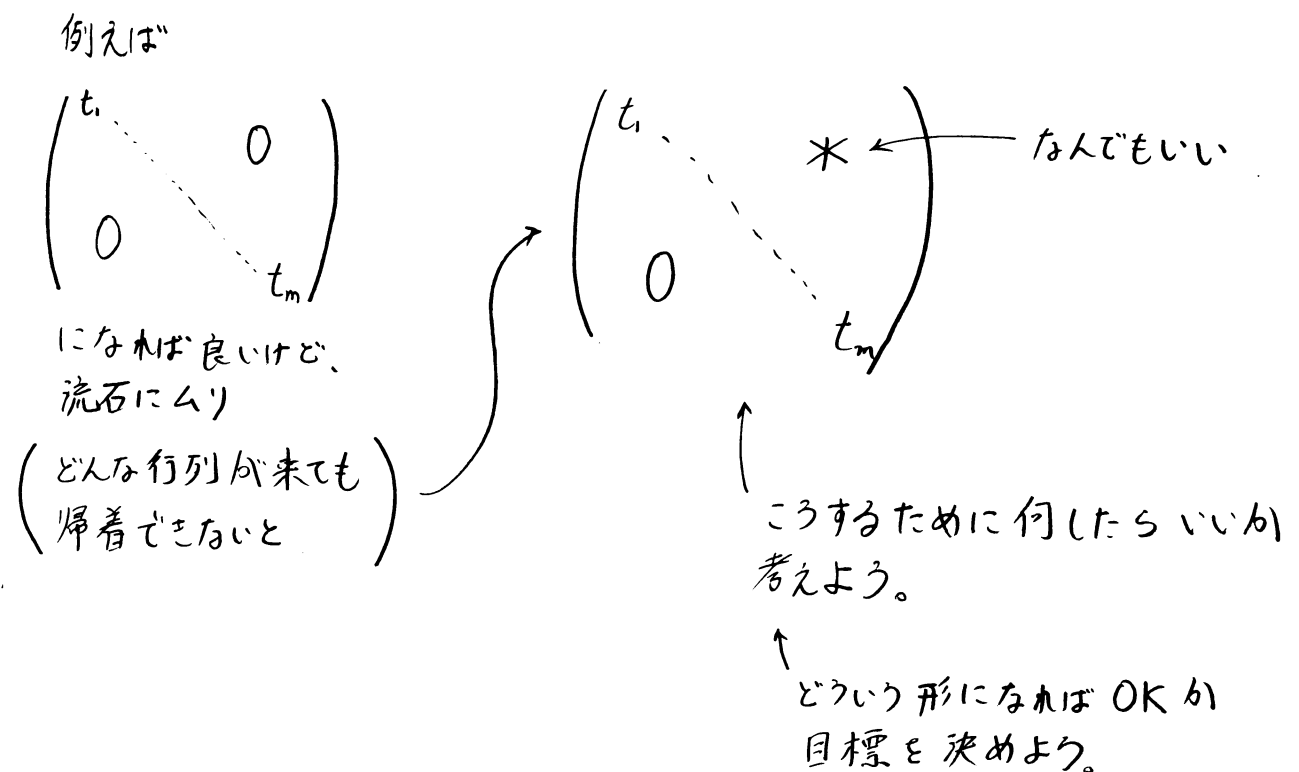 例えば
t₁ 0
0 tₘ
になれば良いけど、
流石にムリ
どんな行列が来ても
帰着できないと
t₁ * なんでもいい
0 tₘ
こうするために何したらいいか
考えよう。
どういう形になればOKか
目標を決めよう。